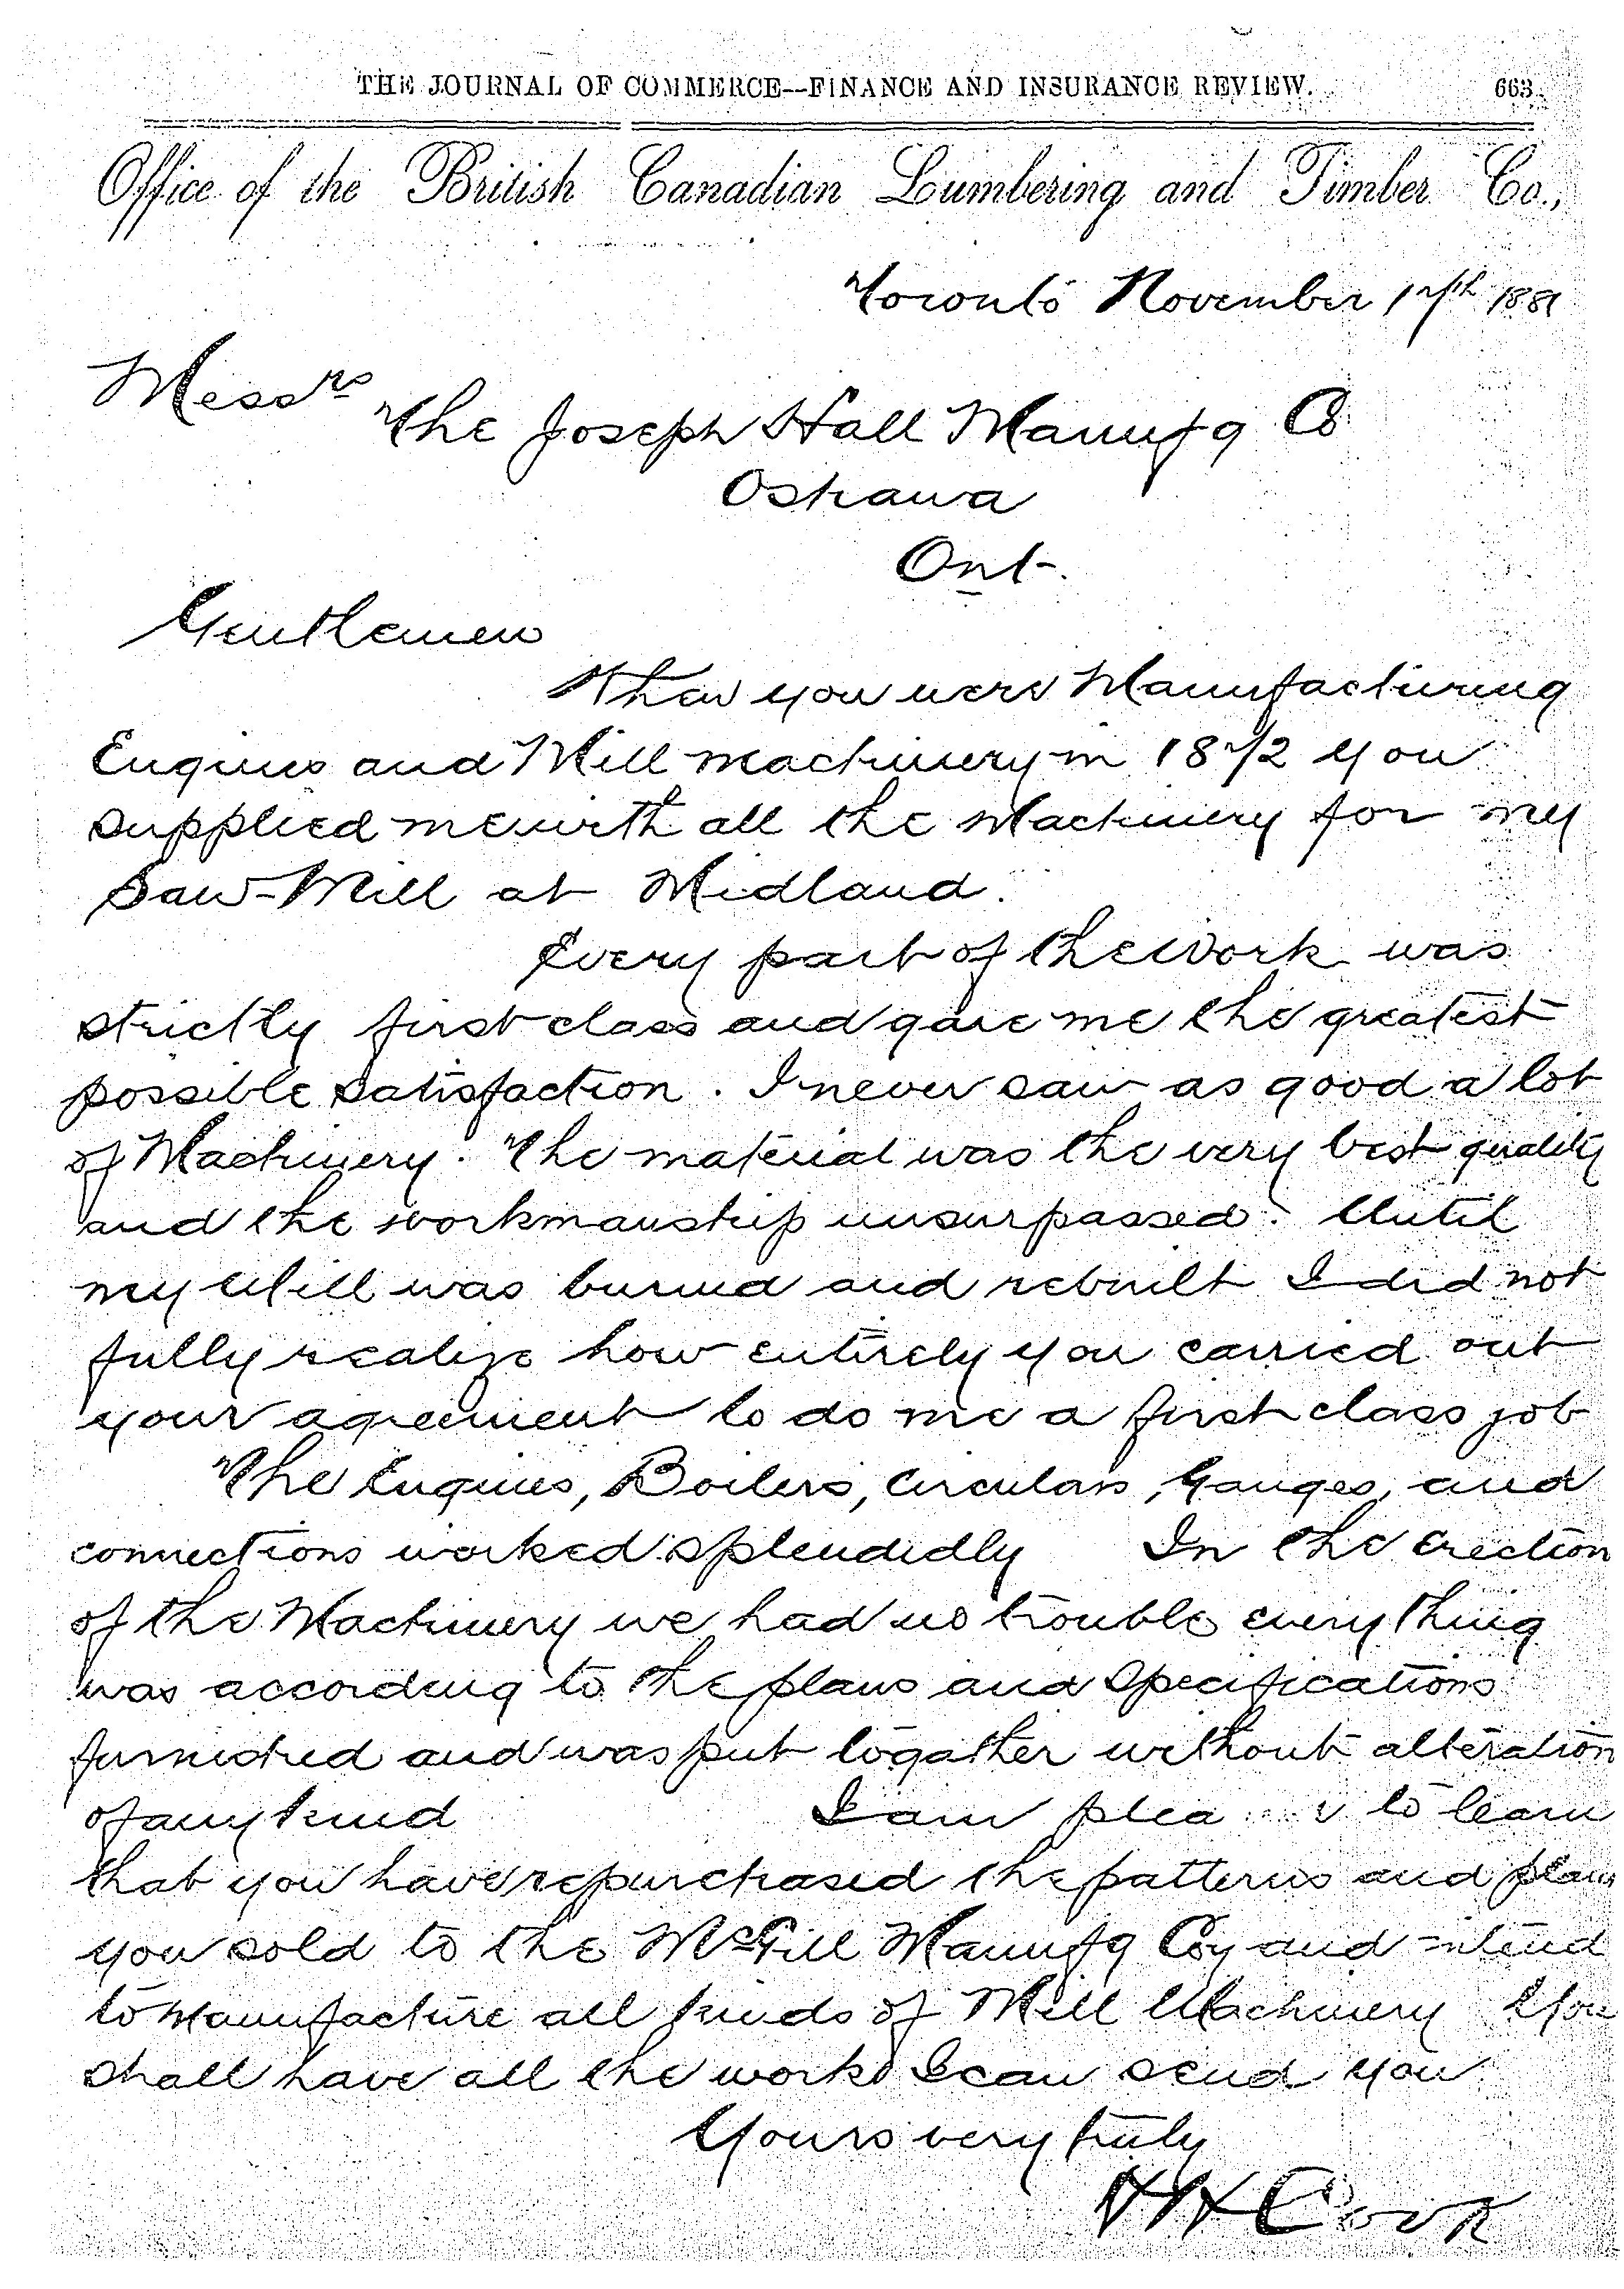 THE JOURNAL OF COMMERCE--FINANCE AND INSURANCE REVIEW. 663
Office of the British Canadian Lumbering and Timber Co.,
Toronto November 17th 1881
Messrs
The Joseph Hall Manufg Co
Oshawa
Ont.
Gentlemen
When you were Manufacturing
Engines and Mill Machinery in 1872 you
supplied me with all the Machinery for my
Saw-Mill at Midland.
Every part of the work was
strictly first class and gave me the greatest
possible satisfaction. I never saw as good a lot
of Machinery. The material was the very best quality
and the workmanship unsurpassed. Until
my Mill was burned and rebuilt I did not
fully realize how entirely you carried out
your agreement to do me a first class job
The Engines, Boilers, Circulars, Gauges, and
connections worked splendidly In the erection
of the Machinery we had no trouble every thing
was according to the plans and specifications
furnished and was put togather without alteration
of any kind I am to learn
that you have repurchased the patterns and plans
you sold to the McGill Manufg Coy and intend
to Manufacture all kinds of Mill Machinery You
shall have all the work I can send you
Yours very truly
H H Cook